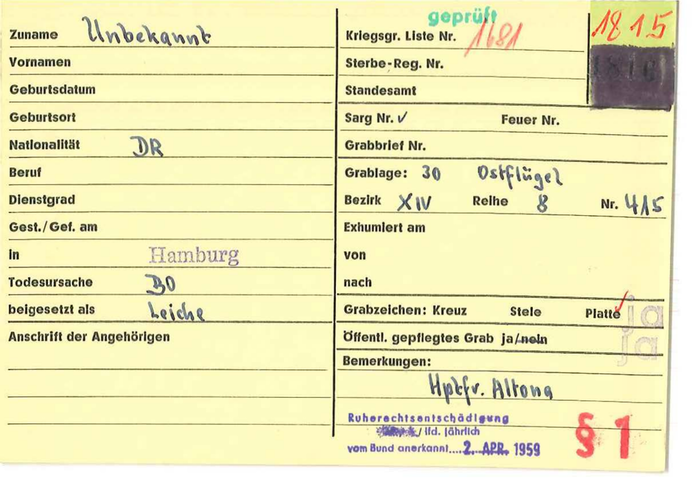 Zuname Unbekannt
Vornamen
Geburtsdatum
Geburtsort
Nationalität DR
Beruf
Dienstgrad
Gest./Gef. am
in Hamburg
Todesursache BO
beigesetzt als Leiche
Anschrift der Angehörigen
geprüft
Kriegsgr. Liste Nr. 1681
1815
Sterbe-Reg. Nr.
Standesamt
Sarg Nr. ✓ Feuer Nr.
Grabbrief Nr.
Grablage: 30 Ostflügel
Bezirk XIV Reihe 8 Nr. 415
Exhumiert am
von
nach
Grabzeichen: Kreuz Stele Platte ja
Öffentl. gepflegtes Grab ja/nein ja
Bemerkungen:
Hptfr. Altona
Ruherechtsentschädigung
/ lfd. jährlich
vom Bund anerkannt 2. APR. 1959
§ 1